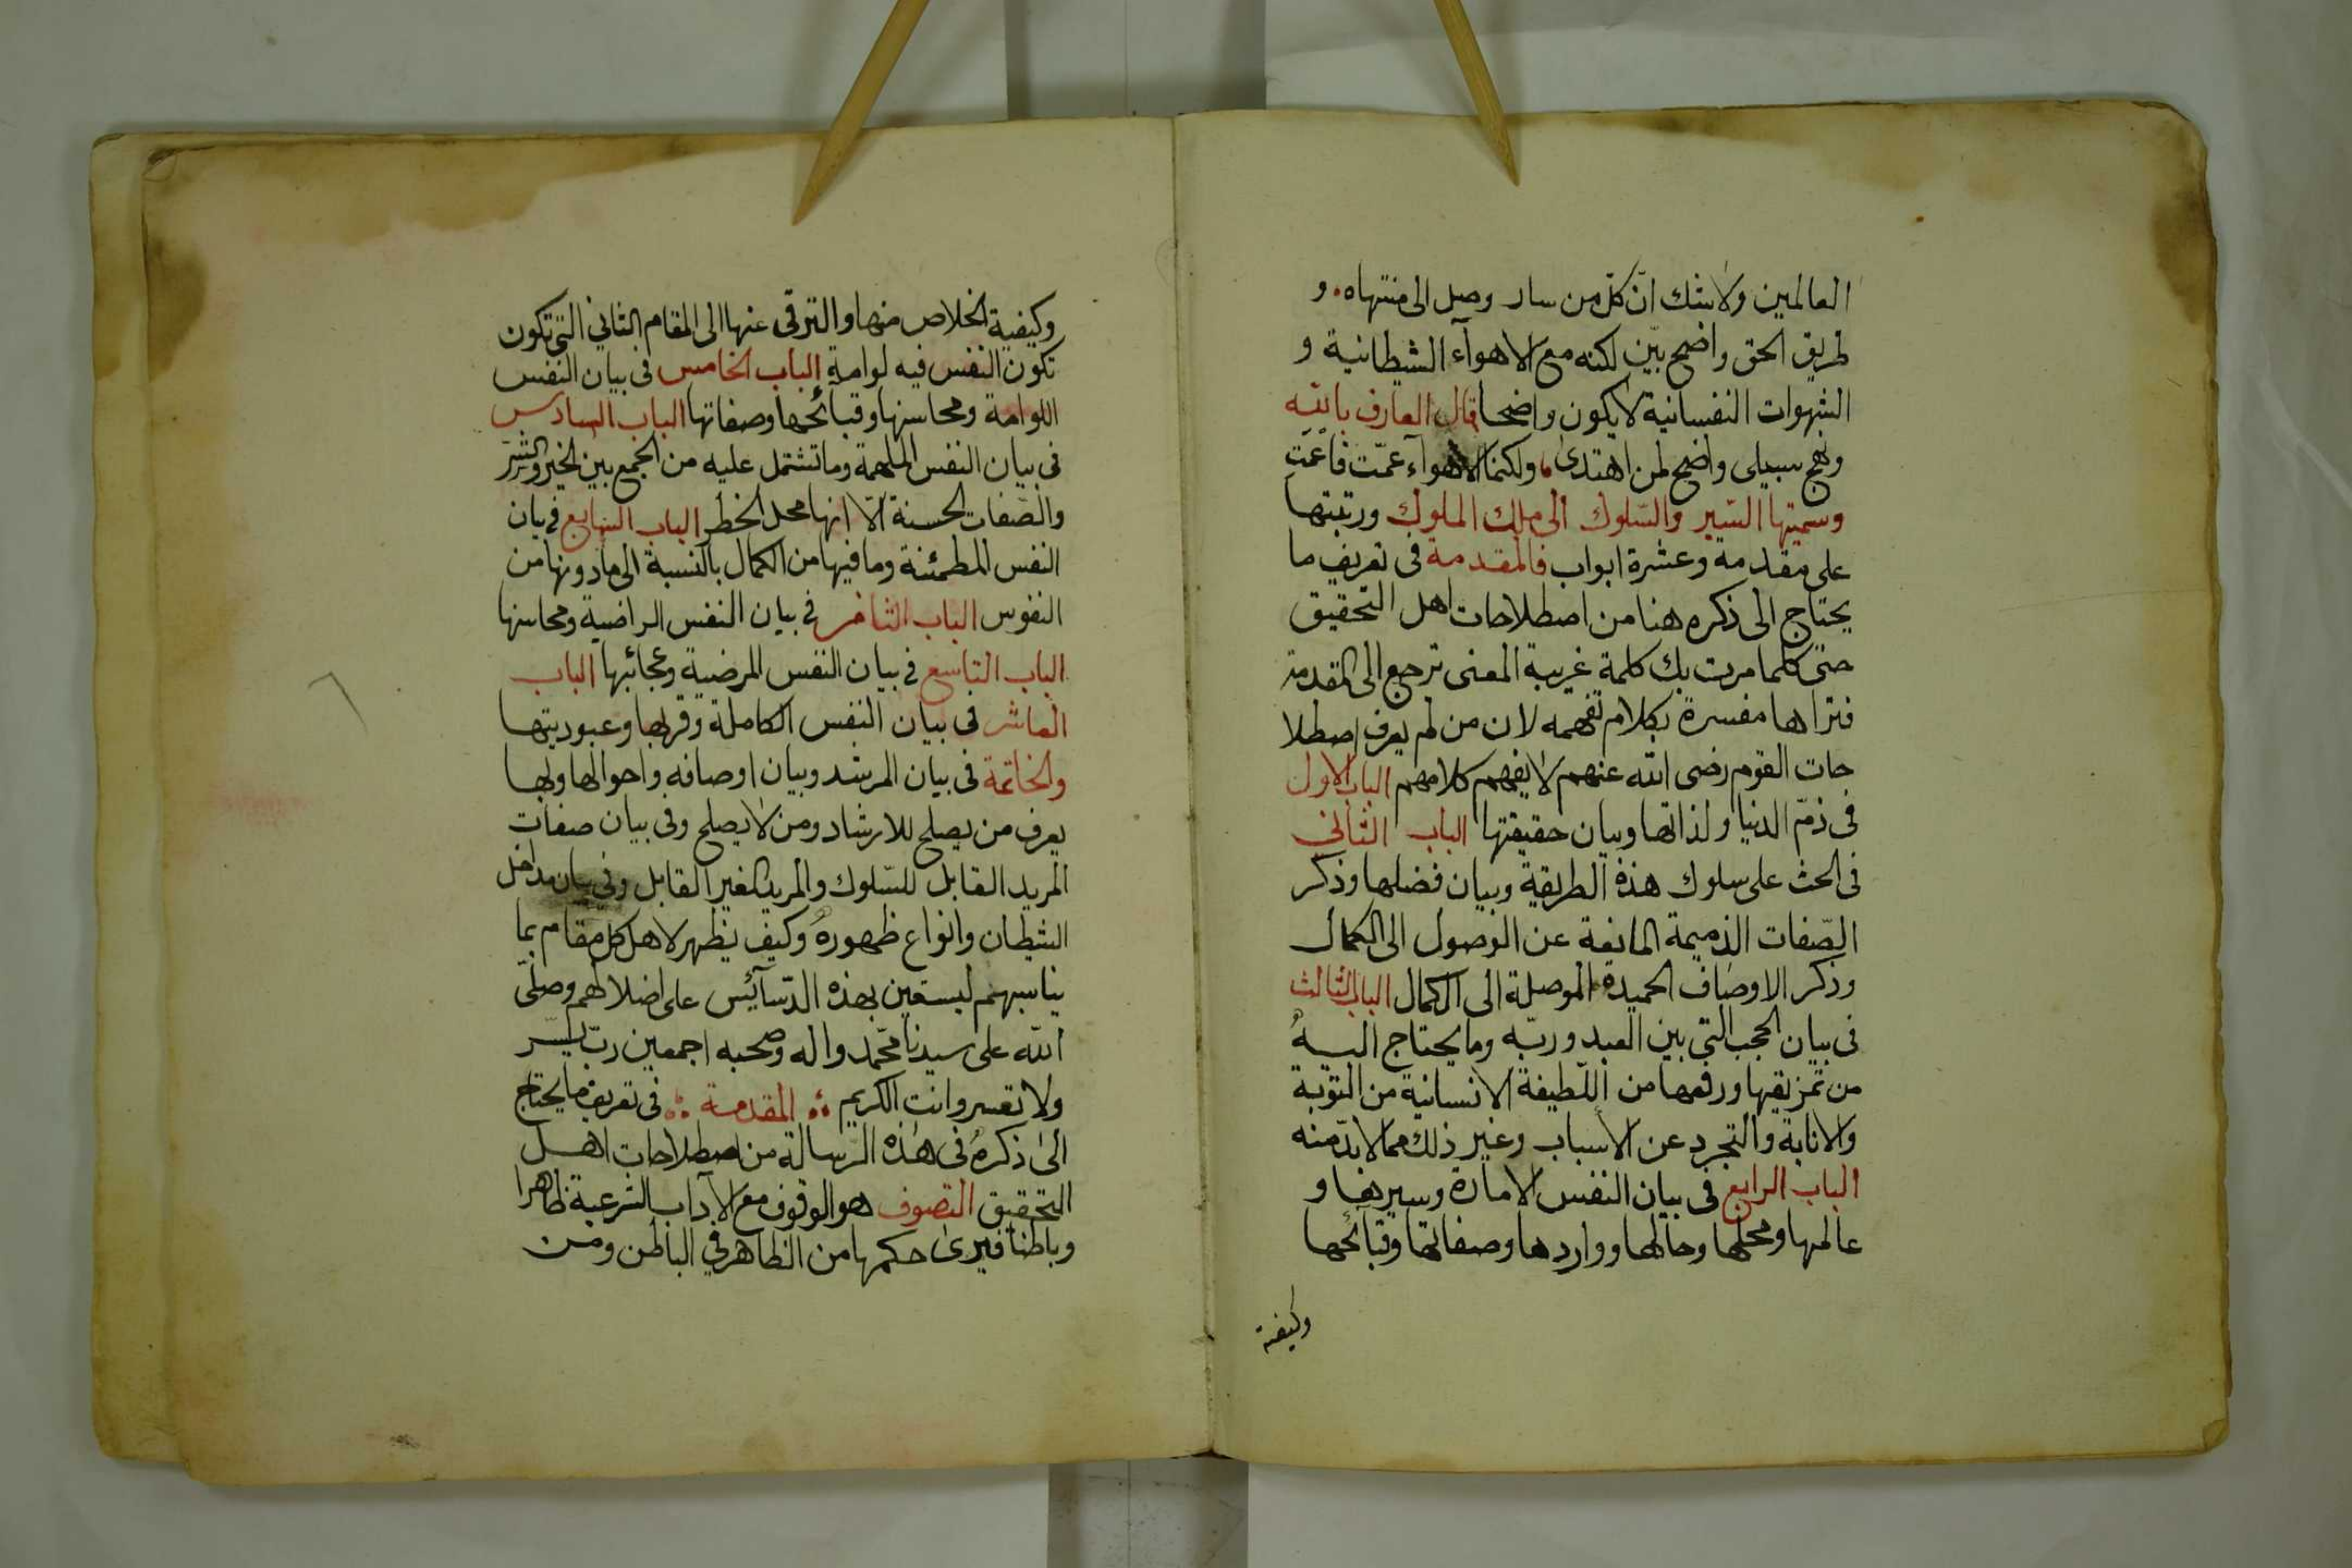 العالمين ولاشك ان كل من سار وصل الى منتهاه . و
طريق الحق واضح بيّن لكنه مع الاهوآء الشيطانية و
الشهوات النفسانية لا يكون واضحا قال العارف بالله
ونهج سبيلى واضح لمن اهتدى ، ولكنما الاهوآء عمّت فأعمت
وسميتها السّير والسّلوك الى ملك الملوك ورتبتها
على مقدمة وعشرة ابواب فالمقدمة فى تعريف ما
يحتاج الى ذكره هنا من اصطلاحات اهل التحقيق
حتى كلما مرت بك كلمة غريبة المعنى ترجع الى المقدمة
فتراها مفسرة بكلام تفهمه لان من لم يعرف اصطلا
حات القوم رضى الله عنهم لا يفهم كلامهم الباب الاول
فى ذمّ الدنيا ولذاتها وبيان حقيقتها الباب الثانى
فى الحث على سلوك هذة الطريقة وبيان فضلها وذكر
الصّفات الذميمة المانعة عن الوصول الى الكمال
وذكر الاوصاف الحميدة الموصلة الى الكمال الباب الثالث
فى بيان الحجب التى بين العبد وربّه وما يحتاج اليه
من تمزيقها ورفعها من اللّطيفة الانسانية من التوبة
والانابة والتجرد عن الأسباب وغير ذلك مما لا بدّ منه
الباب الرابع فى بيان النفس الامارة وسيرها و
عالمها ومحلها وحالها وواردها وصفاتها وقبآئحها
وكيفية
وكيفية الخلاص منها والترقى عنها الى المقام الثانى التى تكون
تكون النفس فيه لوامة الباب الخامس فى بيان النفس
اللوامة ومحاسنها وقبائحها وصفاتها الباب السادس
فى بيان النفس الملهمة وما تشتمل عليه من الجمع بين الخير والشر
والصّفات الحسنة الّا انها محل الخطر الباب السابع فى بيان
النفس المطمئنة وما فيها من الكمال بالنسبة الى ما دونها من
النفوس الباب الثامن فى بيان النفس الراضية ومحاسنها
الباب التاسع فى بيان النفس المرضية وعجائبها الباب
العاشر فى بيان النفس الكاملة وقربها وعبوديتها
والخاتمة فى بيان المرشد وبيان اوصافه واحوالها وبها
يعرف من يصلح للارشاد ومن لا يصلح وفى بيان صفات
المريد القابل للسّلوك والمريد الغير القابل وفى بيان مداخل
الشيطان وانواع ظهوره وكيف يظهر لاهل كل مقام بما
يناسبهم ليستعين بهذه الدّسآئس على اضلالهم وصلّى
الله على سيدنا محمّد واله وصحبه اجمعين ربّ يسّر
ولا تعسر وانت الكريم المقدمة فى تعريف ما يحتاج
الى ذكره فى هذه الرّسالة من اصطلاحات اهل
التحقيق التصوف هو الوقوف مع الآداب الشرعية ظاهرا
وباطنا فيرى حكمها من الظاهر فى الباطن ومن